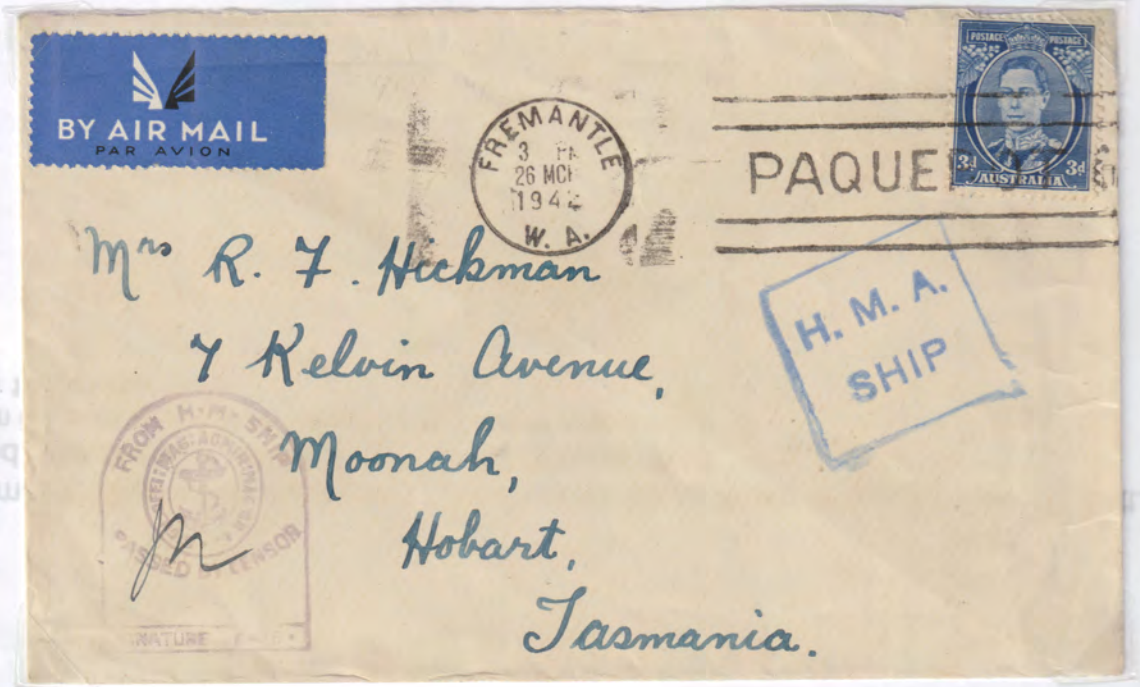 BY AIR MAIL
PAR AVION
FREMANTLE
3
26 MCH
194
W. A.
POSTAGE POSTAGE
3d 3d
AUSTRALIA
H. M. A.
SHIP
Mrs R. F. Hickman
7 Kelvin Avenue,
Moonah,
Hobart,
Tasmania.
FROM H·M· SHIP
PASSED BY CENSOR